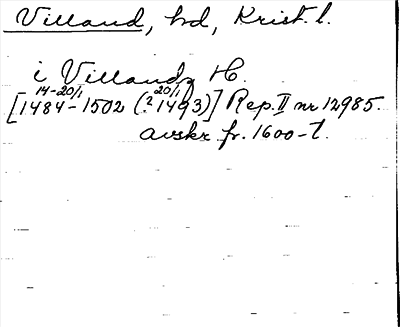 Villand, hd, Krist. l.
i Villandz H.
14-20/1 20/1
[1484-1502 (?1493)] Rep. II nr 12985.
avskr. fr. 1600-t.